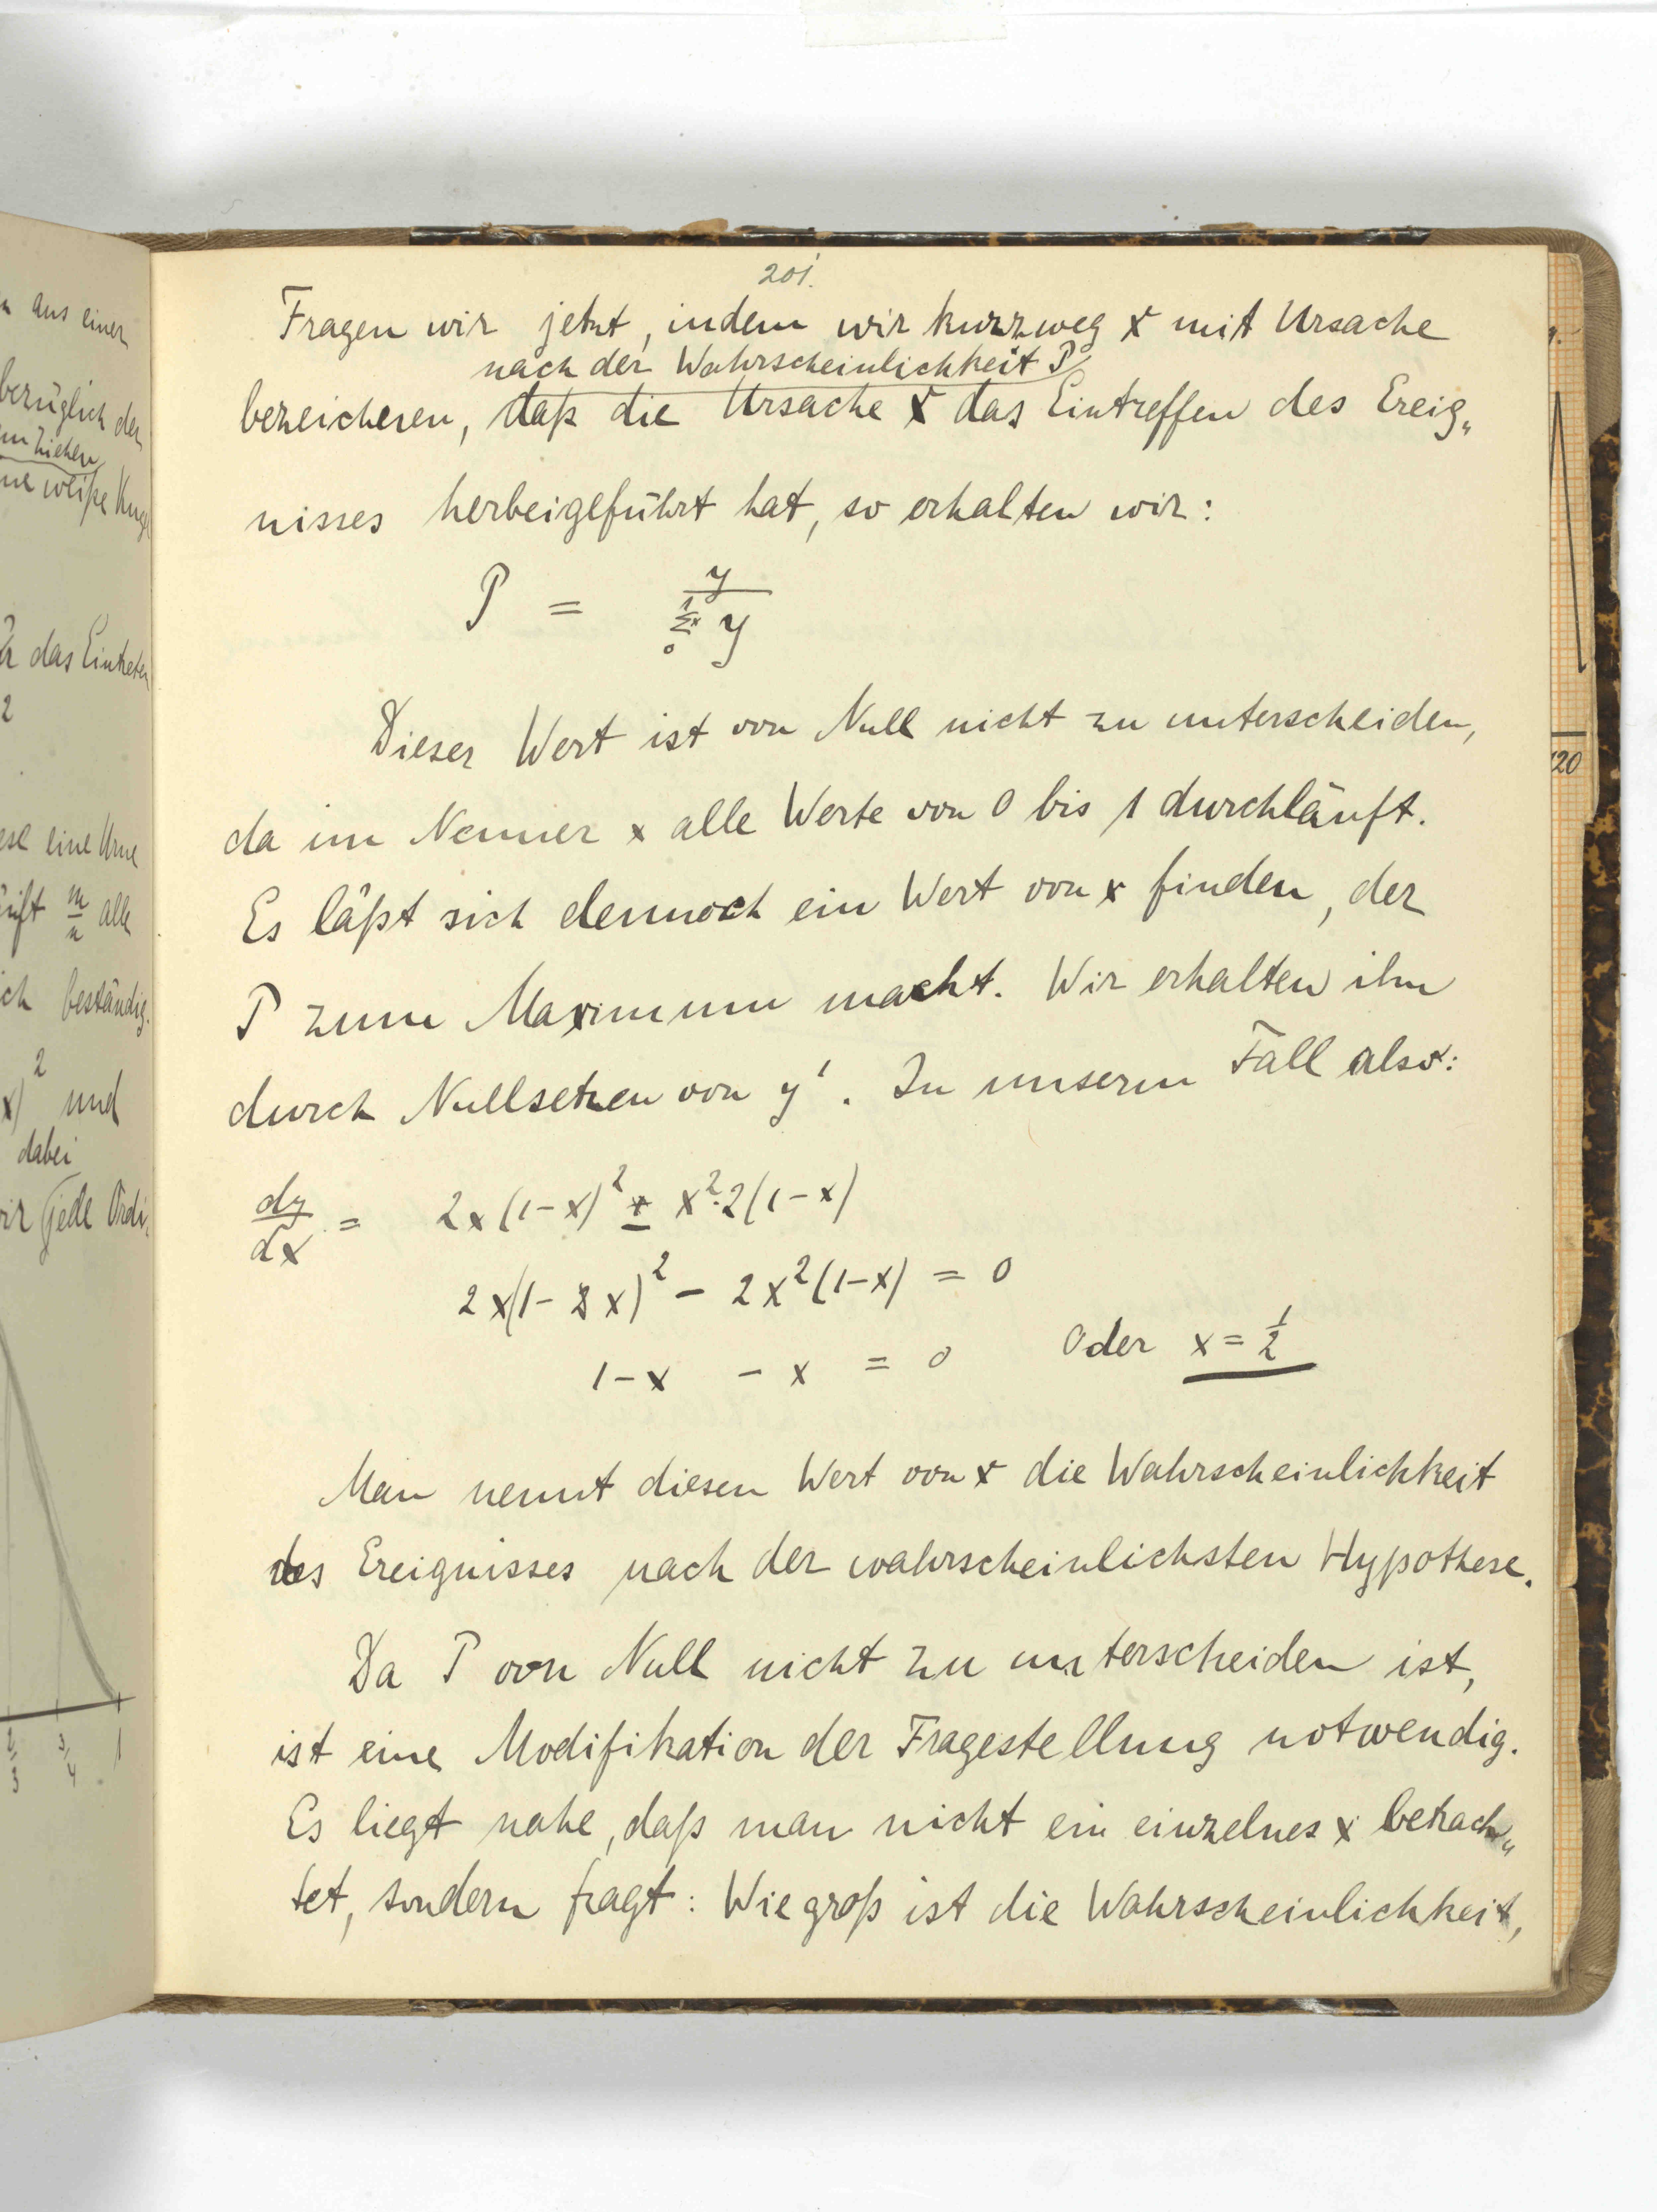 n aus einer
bezüglich der
m Ziehen
ne weiße Kug
das Eintreten
2
ese eine Urne
m/n alle
ich beständig.
x)² und
dabei
wir jede Ordi„
2/3 3/4 1
201.
Fragen wir jetzt, indem wir kurzweg x mit Ursache
nach der Wahrscheinlichkeit P
bezeichenen, daß die Ursache x das Eintreffen des Ereig„
nisses herbeigeführt hat, so erhalten wir:
P = y / ¹Σₓ₀ y
Dieser Wert ist von Null nicht zu unterscheiden,
da im Nenner x alle Werte von 0 bis 1 durchläuft.
Es läßt sich dennoch ein Wert von x finden, der
P zum Maximum macht. Wir erhalten ihn
durch Nullsetzen von y'. In unserm Fall also:
dy/dx = 2x(1-x)² - x²·2(1-x)
2x(1-x)² - 2x²(1-x) = 0
1-x - x = 0 Oder x = 1/2
Man nennt diesen Wert von x die Wahrscheinlichkeit
des Ereignisses nach der wahrscheinlichsten Hypothese.
Da P von Null nicht zu unterscheiden ist,
ist eine Modifikation der Fragestellung notwendig.
Es liegt nahe, daß man nicht ein einzelnes x betrach„
tet, sondern fragt: Wie groß ist die Wahrscheinlichkeit,
20